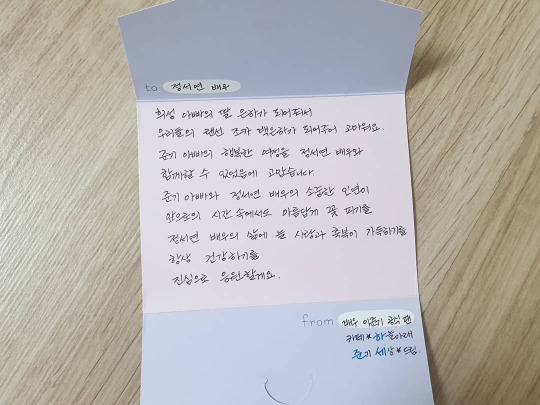 to 정서연 배우
희성 아빠의 딸 은하가 되어줘서
우리들의 랜선 조카 백은하가 되어주어 고마워요.
준기 아빠의 행복한 여정을 정서연 배우와
함께할 수 있었음에 고맙습니다.
준기 아빠와 정서연 배우의 소중한 인연이
앞으로의 시간 속에서도 아름답게 꽃 피기를
정서연 배우의 삶에 늘 사랑과 축복이 가득하기를
항상 건강하기를
진심으로 응원할게요.
from 배우 이준기 공식 팬
카페*하늘아래
준기 세상*드림.